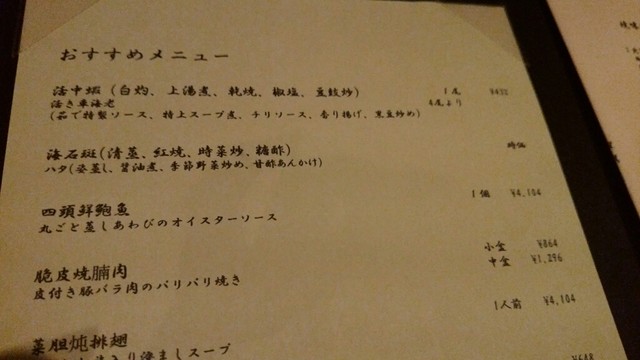 おすすめメニュー
活中蝦（白灼、上湯煮、乾焼、椒塩、豆豉炒） 1尾 ¥432
活き車海老 4尾より
（茹で特製ソース、特上スープ煮、チリソース、香り揚げ、黒豆炒め）
海石斑（清蒸、紅焼、時菜炒、糖酢） 時価
ハタ（姿蒸し、醤油煮、季節野菜炒め、甘酢あんかけ）
四頭鮮鮑魚 1個 ¥4,104
丸ごと蒸しあわびのオイスターソース
脆皮焼腩肉 小盆 ¥864
皮付き豚バラ肉のパリパリ焼き 中盆 ¥1,296
菜胆炖排翅 1人前 ¥4,104
入り澄ましスープ
¥648